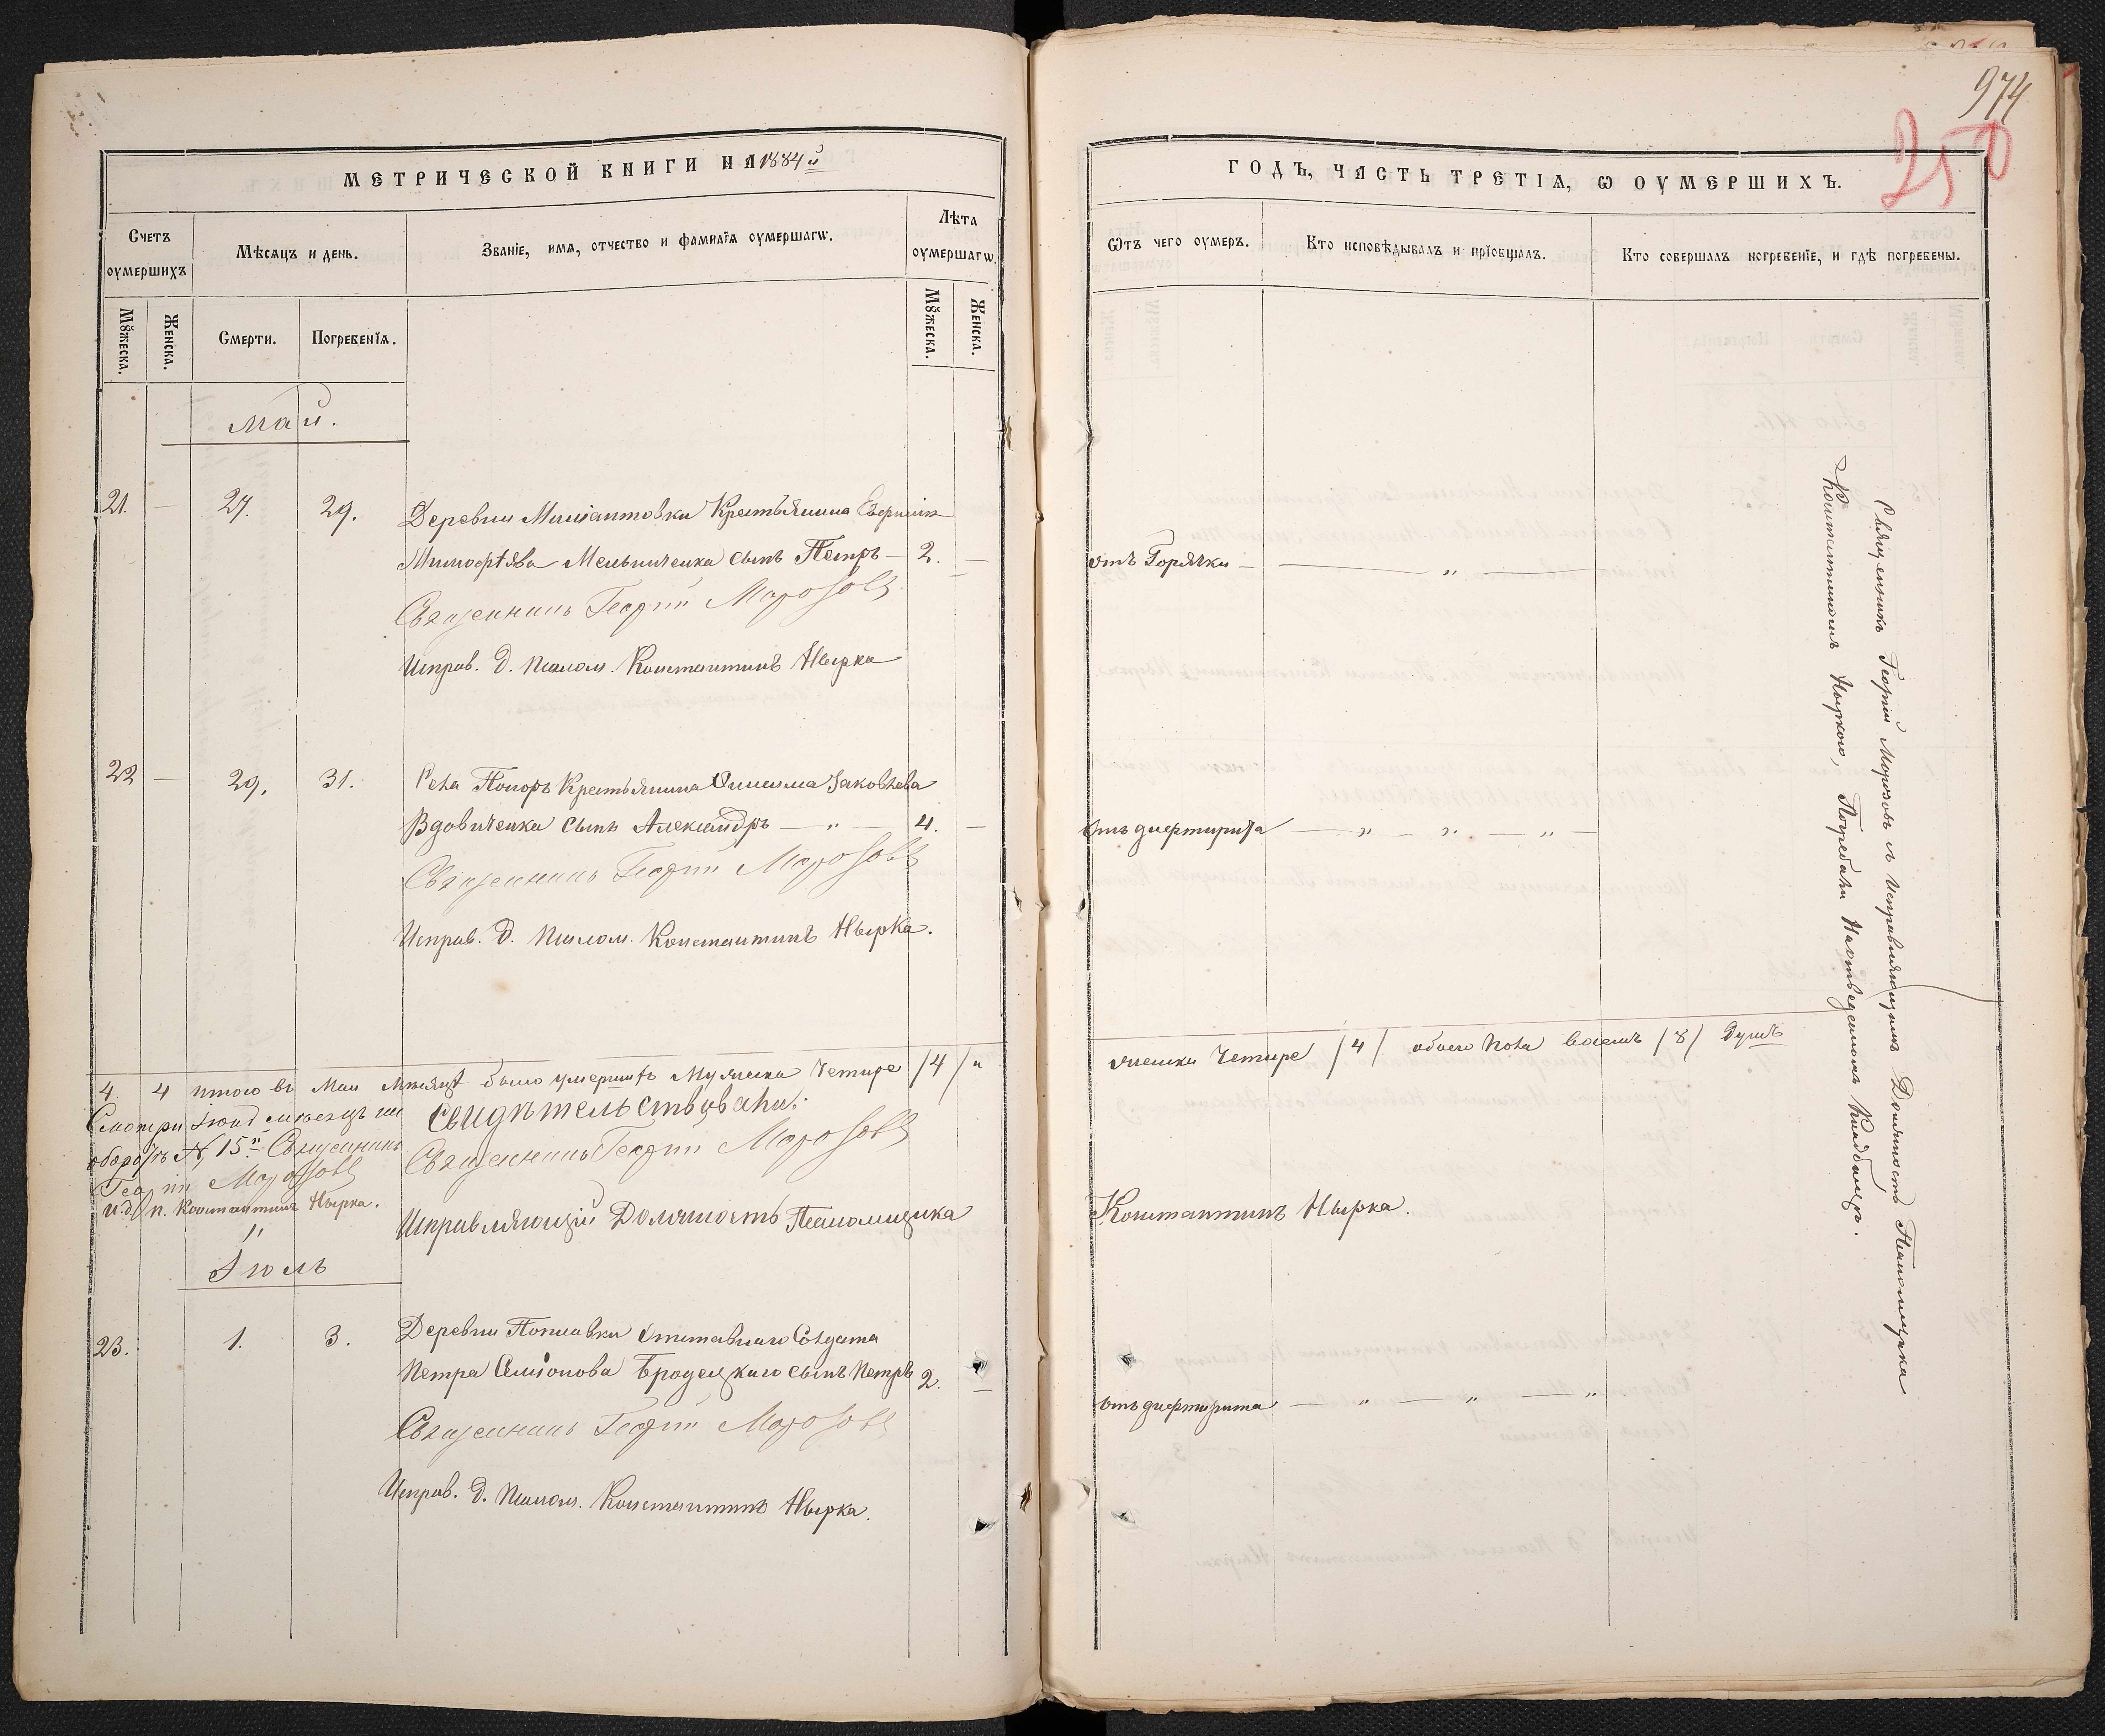 МЕТРИЧЕСКОЙ КНИГИ НА 1884й
Счетъ оумершихъ
Мѣсяцъ и день.
Званіе, имя, отчество и фамилія оумершагѡ.
Лѣта оумершагѡ.
Мꙋжеска.
Женска.
Смерти.
Погребенія.
Мꙋжеска.
Женска.
Май.
21. — 27. 29. Деревни Крестьянина
Мельниченка сынъ Петръ — 2. —
Священникъ Георгій Морозовъ
Исправ. д. псалом. Константинъ Нырка
22 — 29. 31. Села Попоръ Крестьянина Онисима Іаковлева
Вдовиченка сынъ Александръ — „ — 4. —
Священникъ Георгій Морозовъ
Исправ. д. псалом. Константинъ Нырка.
4. 4 итого въ Маи Мѣсяцѣ было умершихъ Мужеска Четыре /4/ и
Смотри Іюнь мѣсяцъ на
оборотъ № 15й Священникъ
Георгій Морозовъ
и. д. п. Константинъ Нырка.
Свидѣтельствовали:
Священникъ Георгій Морозовъ
Исправляющій Должность Псаломщика
„
Іюль
23. 1. 3. Деревни Поплавки Отставнаго Солдата
Петра Симіонова Бродецкаго сынъ Петръ 2. —
Священникъ Георгій Морозовъ
Исправ. д. псалом. Константинъ Нырка.
974
250
ГОДЪ, ЧАСТЬ ТРЕТІЯ, Ѡ ОУМЕРШИХЪ.
Ѿтъ чего оумеръ.
Кто исповѣдывалъ и пріобщалъ.
Кто совершалъ погребеніе, и гдѣ погребены.
отъ Горячки — — „ —
отъ дифтирита — „ — „ — „ —
женска Четыре /4/ обоего пола восемь /8/ душъ
Константинъ Нырка.
отъ дифтирита — „ — „ — „
Священникъ Георгій Морозовъ съ Исправляющимъ Должность Псаломщика
Константиномъ Ныркою, Погребали На отведенномъ Кладбищѣ.